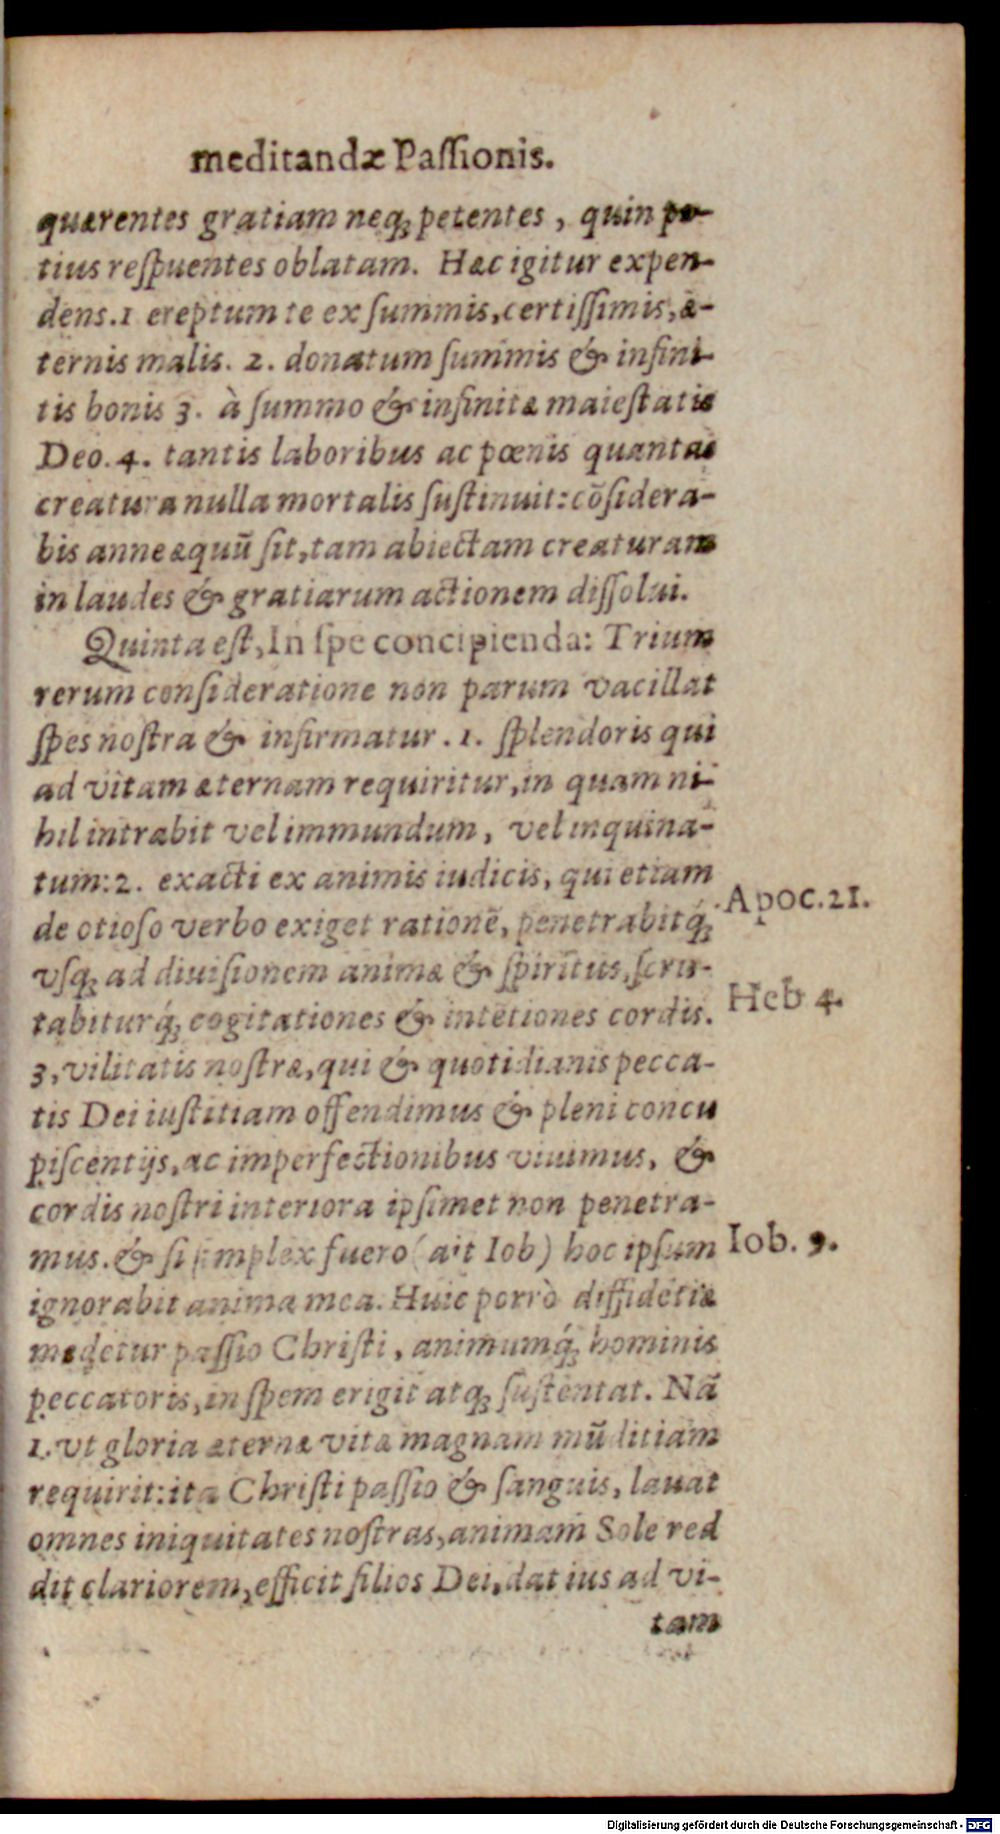 meditandæ Paſſionis.
quærentes gratiam neq; petentes, quin po-
tius reſpuentes oblatam. Hæc igitur expen-
dens. 1 ereptum te ex ſummis, certiſſimis, æ-
ternis malis. 2. donatum ſummis & infini-
tis bonis 3. à ſummo & infinitæ maieſtatis
Deo. 4. tantis laboribus ac pœnis quantas
creatura nulla mortalis ſuſtinuit: cõſidera-
bis anne æquũ ſit, tam abiectam creaturam
in laudes & gratiarum actionem diſſolui.
Quinta eſt, In ſpe concipienda: Trium
rerum conſideratione non parum vacillat
ſpes noſtra & infirmatur. 1. ſplendoris qui
ad vitam æternam requiritur, in quam ni-
hil intrabit vel immundum, vel inquina-
tum: 2. exacti ex animis iudicis, qui etiam
Apoc. 21.
de otioſo verbo exiget rationẽ, penetrabitq́;
vſq; ad diuiſionem animæ & ſpiritus, ſcru-
Heb 4.
tabiturq́; cogitationes & intẽtiones cordis.
3, vilitatis noſtræ, qui & quotidianis pecca-
tis Dei iuſtitiam offendimus & pleni concu
piſcentijs, ac imperfectionibus viuimus, &
cordis noſtri interiora ipſimet non penetra-
mus. & ſi ſimplex fuero (ait Iob) hoc ipſum
Iob. 9.
ignorabit anima mea. Huic porrò diffidẽtiæ
medetur paſſio Chriſti, animumq́; hominis
peccatoris, in ſpem erigit atq; ſuſtentat. Nã
1. vt gloria æternæ vitæ magnam mũditiam
requirit: ita Chriſti paſſio & ſanguis, lauat
omnes iniquitates noſtras, animam Sole red
dit clariorem, efficit filios Dei, dat ius ad vi-
tam
Digitalisierung gefördert durch die Deutsche Forschungsgemeinschaft - DFG